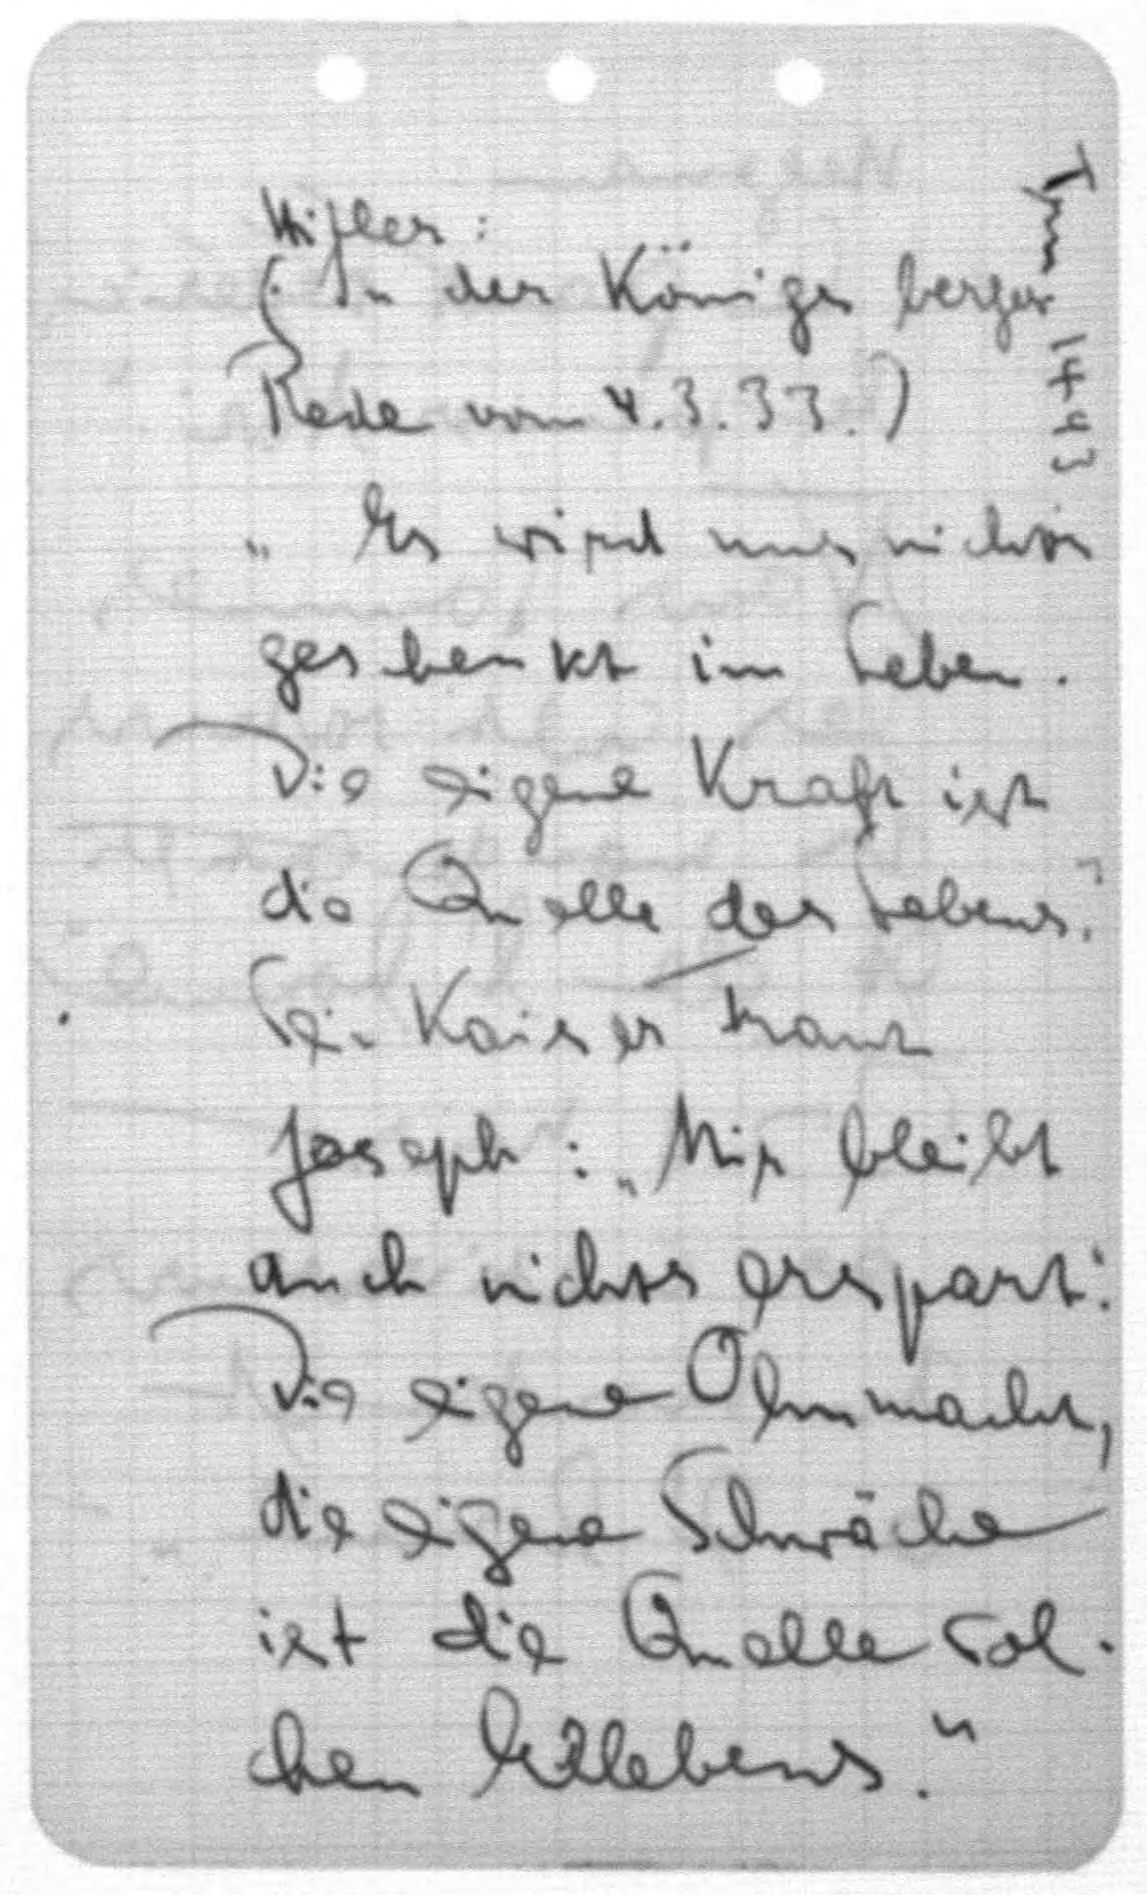 Hitler:
(In der Königsberger
Rede vom 4.3.33.)
„Es wird uns nichts
geschenkt im Leben.
Die eigene Kraft ist
die Quelle des Lebens."
Bei Kaiser Franz
Joseph: „Mir bleibt
auch nichts erspart:
Die eigene Ohnmacht,
die eigene Schwäche
ist die Quelle sol-
chen Erlebens."
1443